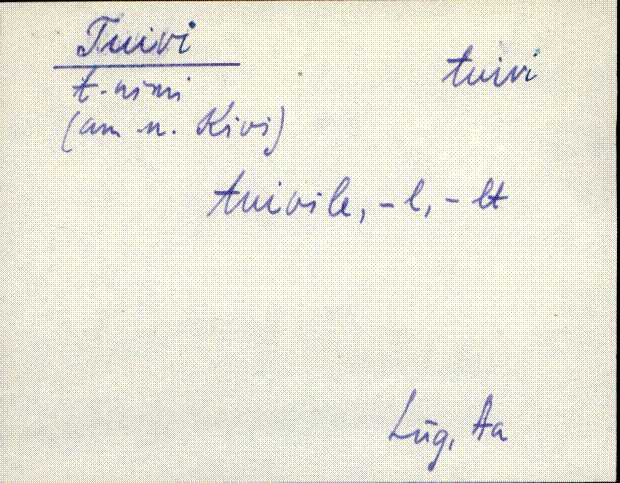 Tuivi
tuivi
t-nimi
(am n. Kivi)
tuivile, -l, -lt
Lüg, Aa